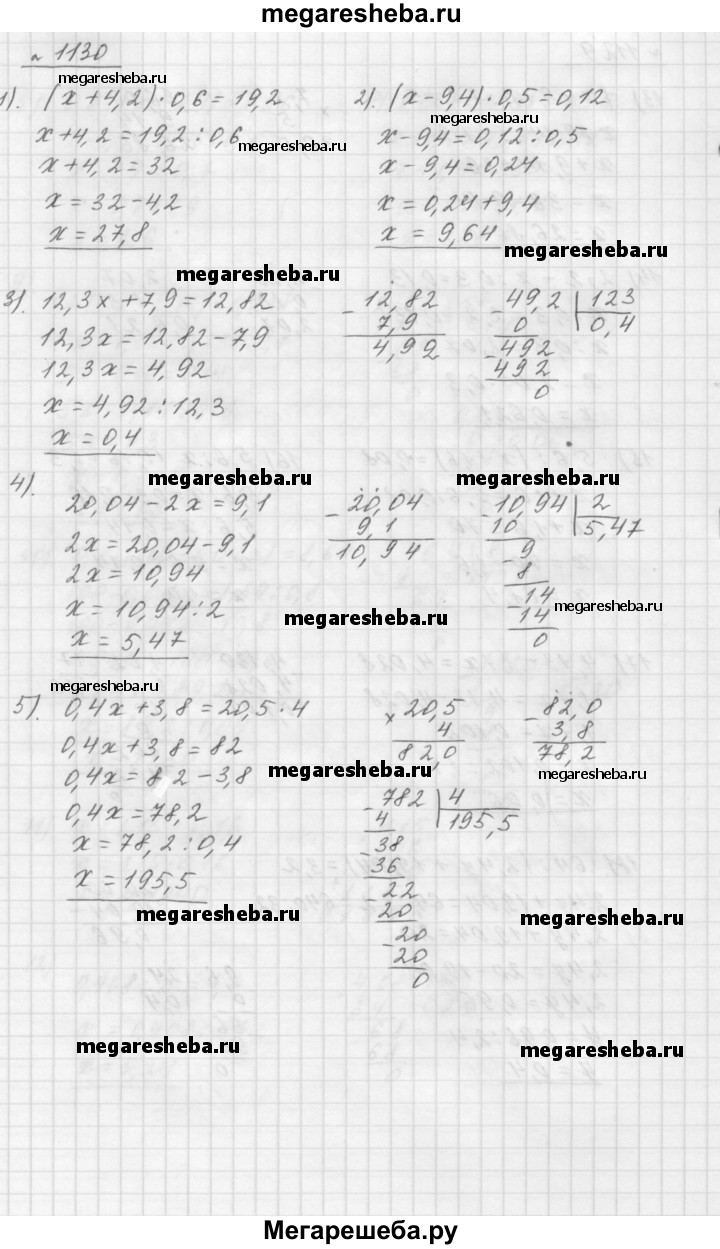 megaresheba.ru
№ 1130
megaresheba.ru
1). (x+4,2)·0,6=19,2
x+4,2=19,2:0,6
megaresheba.ru
x+4,2=32
x=32-4,2
x=27,8
megaresheba.ru
2). (x-9,4)·0,5=0,12
megaresheba.ru
x-9,4=0,12:0,5
x-9,4=0,24
x=0,24+9,4
x = 9,64
megaresheba.ru
3). 12,3x+7,9=12,82
12,3x=12,82-7,9
12,3x=4,92
x=4,92:12,3
x=0,4
- 12,82
7,9
4,92
- 49,2 | 123
0 0,4
- 492
492
0
megaresheba.ru
megaresheba.ru
4).
20,04-2x=9,1
2x=20,04-9,1
2x=10,94
x=10,94:2
x=5,47
- 20,04
9,1
10,94
- 10,94 | 2
10 5,47
- 9
8
- 14
14
0
megaresheba.ru
megaresheba.ru
megaresheba.ru
5). 0,4x+3,8=20,5·4
0,4x+3,8=82
0,4x=82-3,8
0,4x=78,2
x=78,2:0,4
x=195,5
x 20,5
4
82,0
- 82,0
3,8
78,2
megaresheba.ru
megaresheba.ru
- 782 | 4
4 195,5
- 38
36
- 22
20
- 20
20
0
megaresheba.ru
megaresheba.ru
megaresheba.ru
megaresheba.ru
Мегарешеба.ру